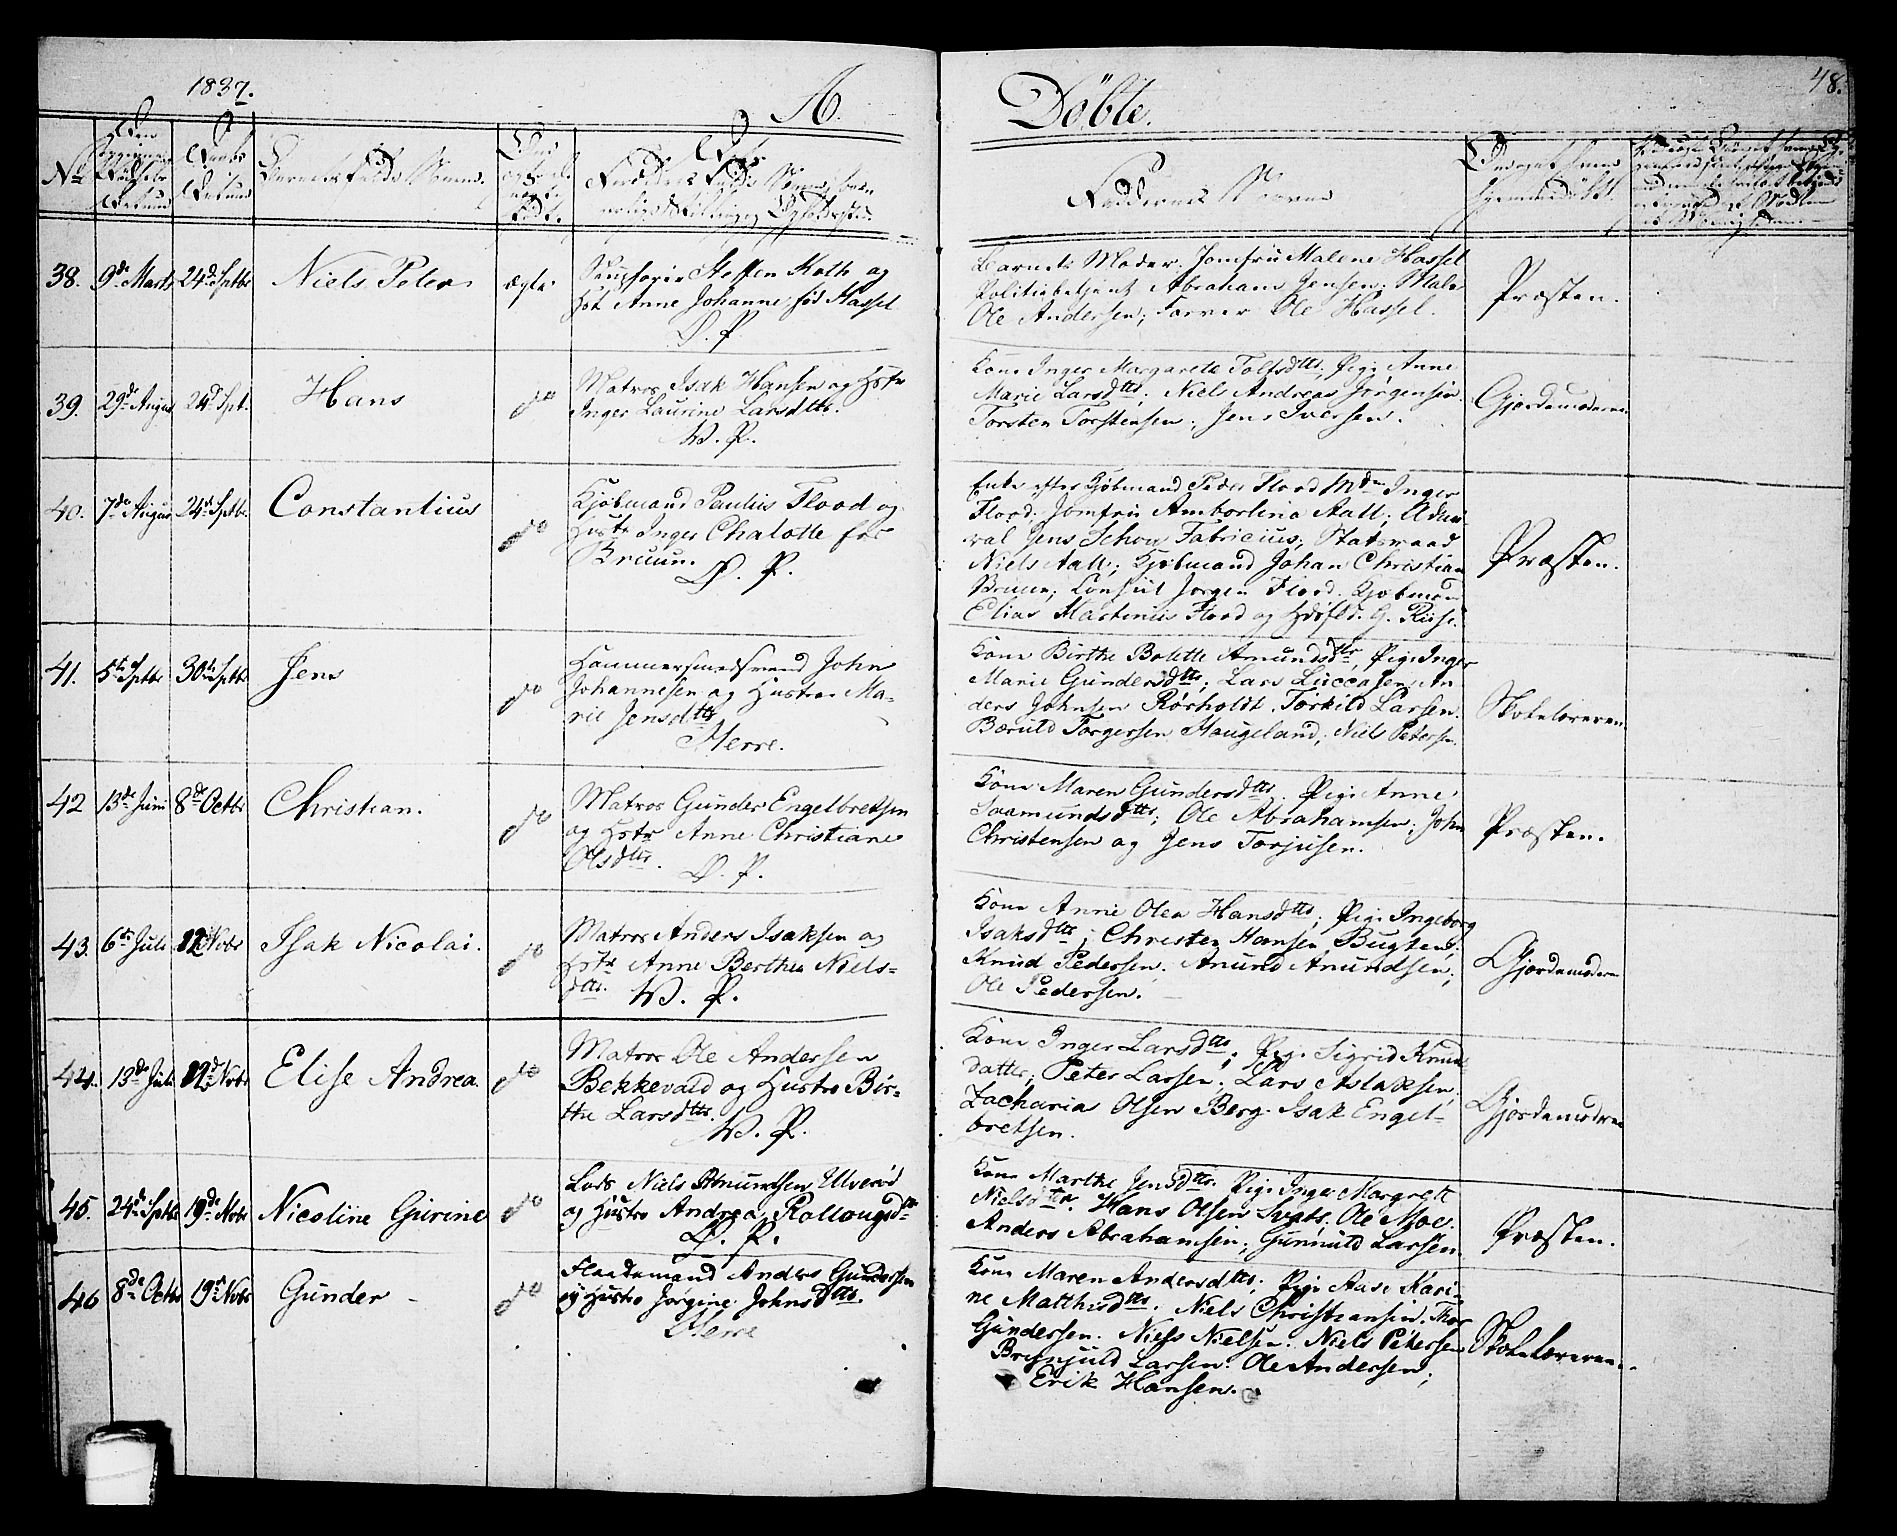 1837.
A.
Døbte.
48.
No
Daabs
Barnets fulde Navn.
Faddernes Navne
38. 9de Marts 24de Septbr Niels Peter ægte
Steffen Kath og
Anne Johanne, fød Hassel
D. P.
Barnets Moder. Jomfru Malene Hassel
Politiebetjent Abraham Jensen; Maler
Ole Andersen; Farver Ole Hassel.
Præsten.
39. 29de August 24de Spt. Hans do
Matros Isak Hansen og Hstr
Inger Laurine Larsdttr.
W. P.
Kone Inger Margarete Tolfsdttr, Pige Anne
Marie Larsdttr; Niels Andreas Jørgensen
Torsten Torstensen; Jens Iversen.
Gjordemoderen
40. 7de August 24de Septbr. Constantius do
Kjøbmand Paulus Flood og
Hustr Inger Chalotte fød
Bruun. D. P.
Enke efter Kjøbmand Peder Flood Mdm Inger
Flood; Jomfru Amborlina Aall; Admi-
ral Jens Schou Fabricius; Statsraad
Niels Aall; Kjøbmand Johan Christian
Bruun; Consul Jørgen Flood. Kjøbman
Elias Martinius Flood og G. Riise.
Præsten.
41. 5te Septbr 30te Septbr Jens do
Hammersmedsvend John
Johannesen og Hustroe Ma-
rie Jensdttr
Herre.
Kone Birthe Bolette Amundsdttr, Pige Inger
Marie Gundersdttr; Lars Luccasen, An
ders Johnsen Rørholdt. Torkild Larsen.
Bæruld Torgersen Haugeland; Niels Petersen.
Skolelæreren
42 13de Juni 8de Octbr Christian. do
Matros Gunder Engelbretsen
og Hstr Anne Christiane
Olsdttr. D. P.
Kone Maren Gundersdttr. Pige Anne
Saamundsdttr; Ole Abrahamsen; John
Christensen og Jens Torjusen.
Præsten.
43. 6te Juli 12te Novbr Isak Nicolai. do
Matros Anders Isaksen og
Hstr Anne Berthea Niels-
dttr. W. P.
Kone Anne Olea Hansdttr; Pige Ingeborg
Isaksdttr; Christen Hansen Bugten;
Knud Pedersen. Anund Anundsen;
Ole Pedersen.
Gjordemoderen
44. 13de Juli 12te Novbr Elise Andrea. do
Matros Ole Andersen
Bekkevold og Hustro Bir-
the Larsdttr.
W. P.
Kone Inger Larsdttr; Pige Sigrid Knuds
datter; Peter Larsen; Lars Aslaksen
Zacharias Olsen Berg. Isak Engel-
bretsen.
Gjordemoderen
45. 24de Septbr 19de Novbr Nicoline Gurine do
Lods Niels Anundsen Ulverød
og Hustro Andrea Rollougsdtr
D. P.
Kone Marthe Jensdttr. Pige Inger Margrett
Nielsdttr. Hans Olsen Ole Moe.
Anders Abrahamsen; Gunnuld Larsen.
Præsten.
46 8de Octbr 19de Novbr Gunder - do
Anders Gundersen
og Hustro Jørgine Johnsdttr.
Herre
Kone Maren Andersdttr; Pige Aase Kari-
ne Matthisdttr. Niels Christiansen. Thor
Gundersen. Niels Nielsen. Niels Petersen
Brynjuld Larsen. Ole Andersen;
Erik Hansen.
Skolelæreren